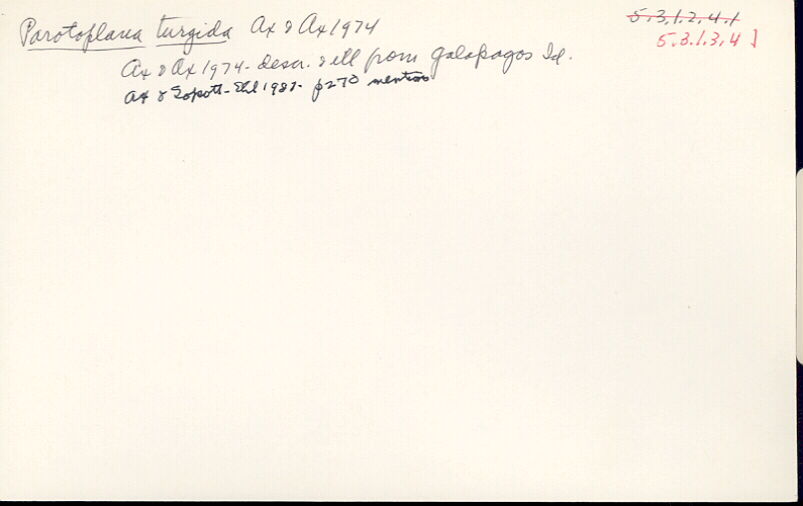 Parotoplana turgida Ax & Ax 1974
5.3.1.2.4.1
5.3.1.3.4 1
Ax & Ax 1974 - descr. & ill from Galapagos Id.
Ax & Sopott-Ehl 1987 - p270 mention